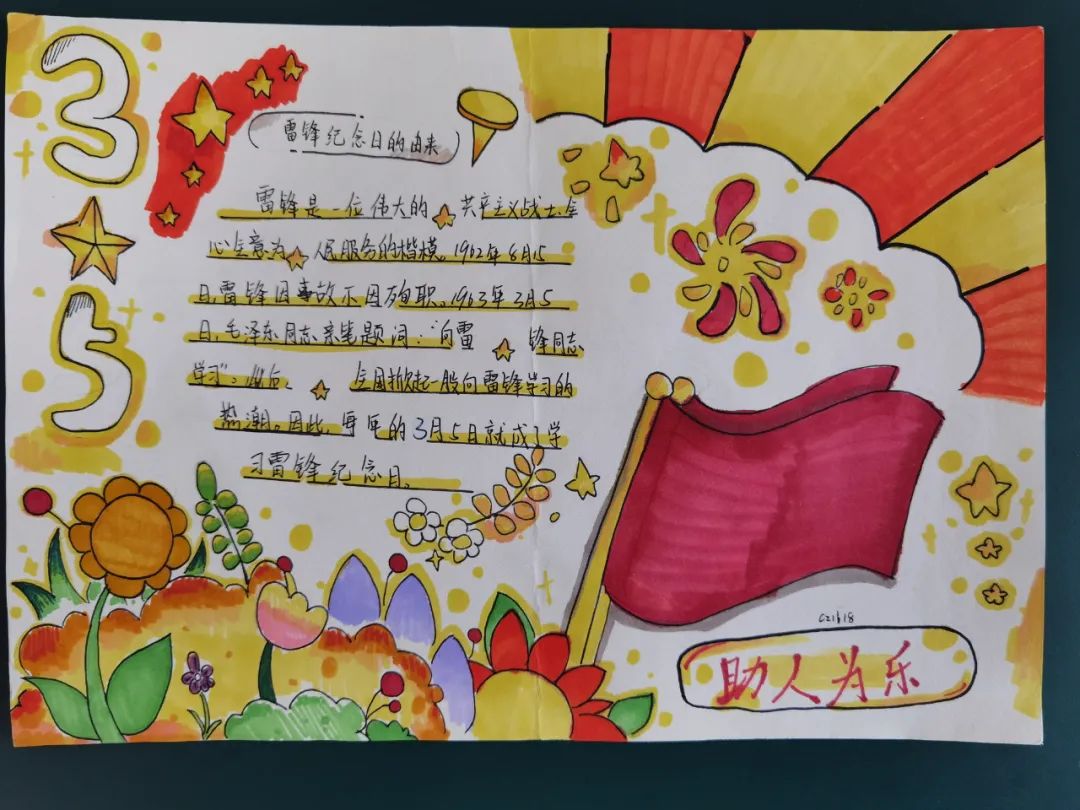 3
5
雷锋纪念日的由来
雷锋是一位伟大的共产主义战士.全
心全意为人民服务的楷模。1962年8月15
日,雷锋因事故不因殉职。1963年3月5
日,毛泽东同志亲笔题词:"向雷锋同志
学习"。此后、全国掀起一股向雷锋学习的
热潮。因此,每年的3月5日就成了学
习雷锋纪念日。
cz1618
助人为乐